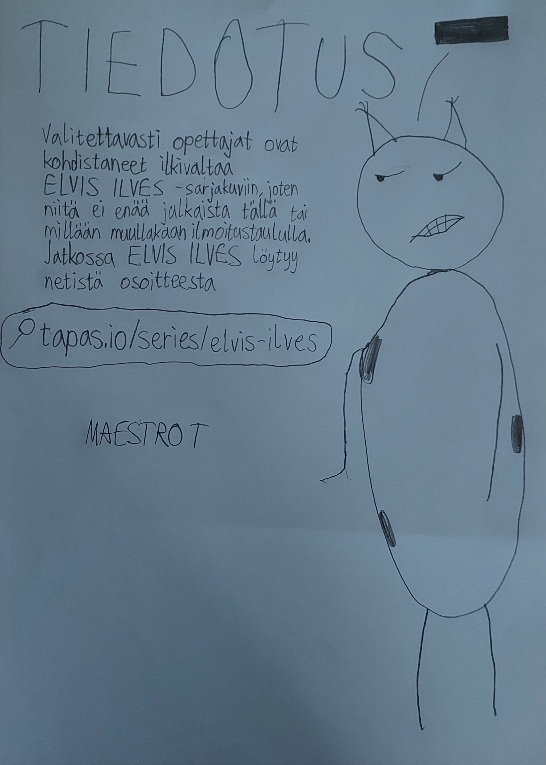 TIEDOTUS
Valitettavasti opettajat ovat
kohdistaneet ilkivaltaa
ELVIS ILVES -sarjakuviin, joten
niitä ei enää julkaista tällä tai
millään muullakaan ilmoitustaululla.
Jatkossa ELVIS ILVES löytyy
netistä osoitteesta
tapas.io/series/elvis-ilves
MAESTRO T